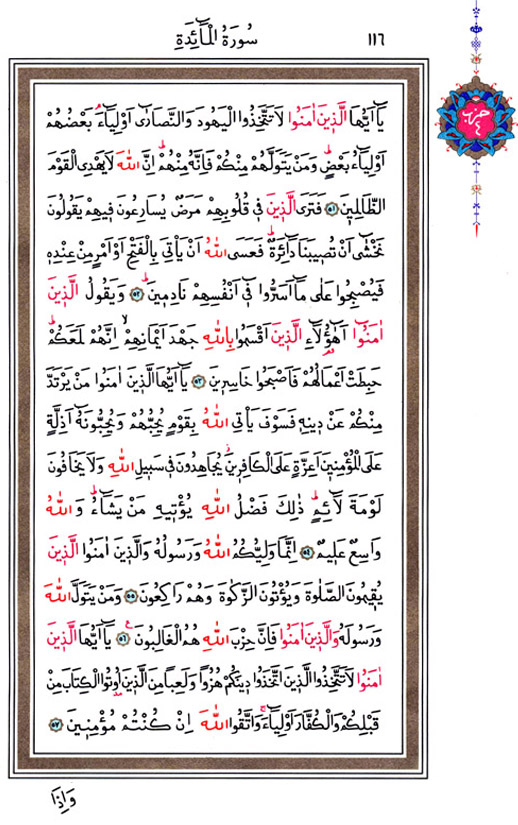 سُورَةُ الْمَٓائِدَةِ ١١٦
حزب ٤
يَٓا اَيُّهَا الَّذ۪ينَ اٰمَنُوا لَا تَتَّخِذُوا الْيَهُودَ وَالنَّصَارٰٓى اَوْلِيَٓاءَۘ بَعْضُهُمْ
اَوْلِيَٓاءُ بَعْضٍۜ وَمَنْ يَتَوَلَّهُمْ مِنْكُمْ فَاِنَّهُ مِنْهُمْۜ اِنَّ اللّٰهَ لَا يَهْدِي الْقَوْمَ
الظَّالِم۪ينَ ﴿٥١﴾ فَتَرَى الَّذ۪ينَ ف۪ي قُلُوبِهِمْ مَرَضٌ يُسَارِعُونَ ف۪يهِمْ يَقُولُونَ
نَخْشٰٓى اَنْ تُص۪يبَنَا دَٓائِرَةٌۜ فَعَسَى اللّٰهُ اَنْ يَأْتِيَ بِالْفَتْحِ اَوْ اَمْرٍ مِنْ عِنْدِه۪
فَيُصْبِحُوا عَلٰى مَٓا اَسَرُّوا ف۪ٓي اَنْفُسِهِمْ نَادِم۪ينَۜ ﴿٥٢﴾ وَيَقُولُ الَّذ۪ينَ
اٰمَنُٓوا اَهٰٓؤُ۬لَٓاءِ الَّذ۪ينَ اَقْسَمُوا بِاللّٰهِ جَهْدَ اَيْمَانِهِمْۙ اِنَّهُمْ لَمَعَكُمْۜ
حَبِطَتْ اَعْمَالُهُمْ فَاَصْبَحُوا خَاسِر۪ينَ ﴿٥٣﴾ يَٓا اَيُّهَا الَّذ۪ينَ اٰمَنُوا مَنْ يَرْتَدَّ
مِنْكُمْ عَنْ د۪ينِه۪ فَسَوْفَ يَأْتِي اللّٰهُ بِقَوْمٍ يُحِبُّهُمْ وَيُحِبُّونَهُٓ اَذِلَّةٍ
عَلَى الْمُؤْمِن۪ينَ اَعِزَّةٍ عَلَى الْكَافِر۪ينَۘ يُجَاهِدُونَ ف۪ي سَب۪يلِ اللّٰهِ وَلَا يَخَافُونَ
لَوْمَةَ لَٓائِمٍۜ ذٰلِكَ فَضْلُ اللّٰهِ يُؤْت۪يهِ مَنْ يَشَٓاءُۜ وَاللّٰهُ
وَاسِعٌ عَل۪يمٌ ﴿٥٤﴾ اِنَّمَا وَلِيُّكُمُ اللّٰهُ وَرَسُولُهُ وَالَّذ۪ينَ اٰمَنُوا الَّذ۪ينَ
يُق۪يمُونَ الصَّلٰوةَ وَيُؤْتُونَ الزَّكٰوةَ وَهُمْ رَاكِعُونَ ﴿٥٥﴾ وَمَنْ يَتَوَلَّ اللّٰهَ
وَرَسُولَهُ وَالَّذ۪ينَ اٰمَنُوا فَاِنَّ حِزْبَ اللّٰهِ هُمُ الْغَالِبُونَ۟ ﴿٥٦﴾ يَٓا اَيُّهَا الَّذ۪ينَ
اٰمَنُوا لَا تَتَّخِذُوا الَّذ۪ينَ اتَّخَذُوا د۪ينَكُمْ هُزُوًا وَلَعِبًا مِنَ الَّذ۪ينَ اُو۫تُوا الْكِتَابَ مِنْ
قَبْلِكُمْ وَالْكُفَّارَ اَوْلِيَٓاءَۚ وَاتَّقُوا اللّٰهَ اِنْ كُنْتُمْ مُؤْمِن۪ينَ ﴿٥٧﴾
وَاِذَا